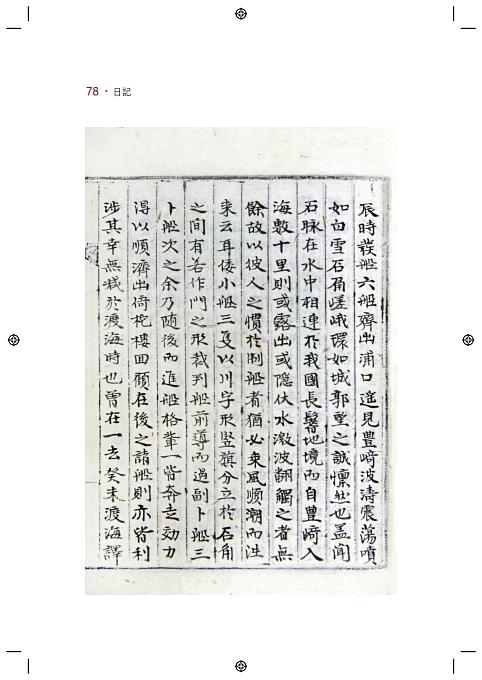 78 · 日記
辰時發船六船齊出浦口遙見豊崎波濤震蕩噴
如白雪石角嵯峨環如城郭望之誠懍然也盖聞
石脉在水中相連於我國長鬐地境而自豊崎入
海數十里則或露出或隱伏水激波翻觸之者無
餘故以彼人之慣於制船者猶必乘風順潮而往
來云耳倭小船三隻以川字形竪旗分立於石角
之間有若作門之形裁判船前導而過副卜船三
卜船次之余乃隨後而進船格輩一皆奔走効力
得以順濟出倚柁樓回顧在後之諸船則亦皆利
涉其幸無減於渡海時也曾在一去癸未渡海譯